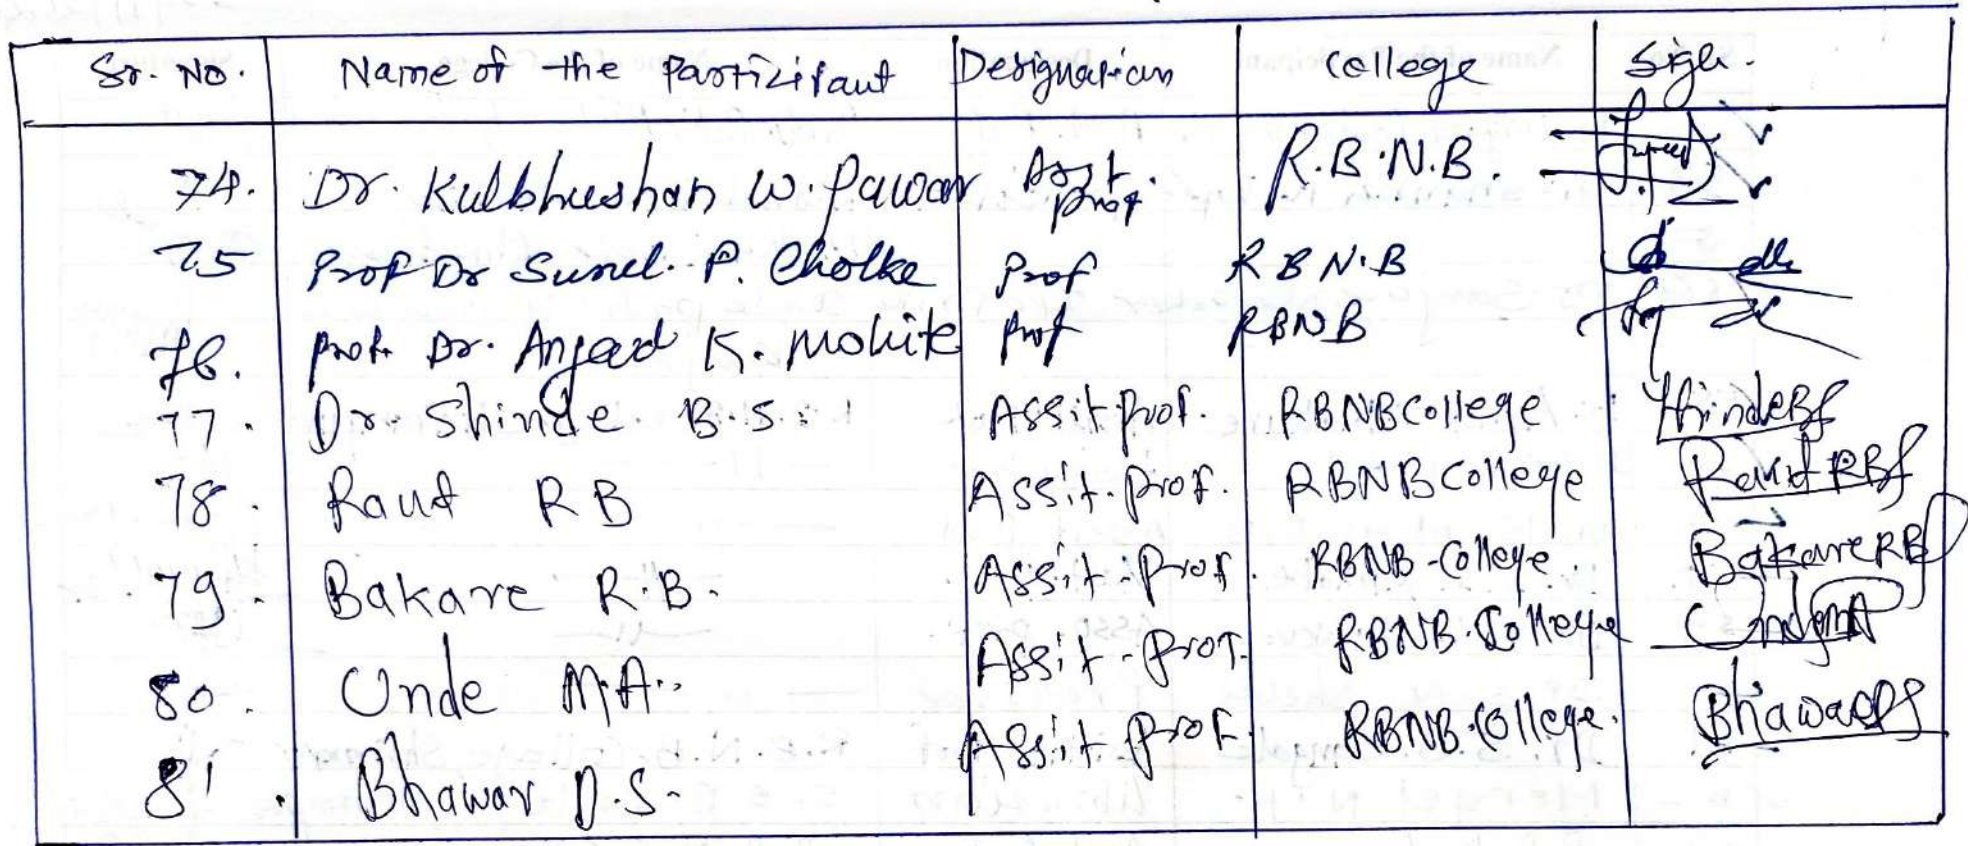 Sr. No. Name of the Participant Designation College Sign.
74. Dr. Kulbhushan W. Pawar Asst. prof R.B.N.B.
75 Prof Dr Sunil. P. Cholke Prof RBN.B
76. prof. Dr. Angad K. Mohite prof RBNB
77. Dr. Shinde B.S. Assit prof. RBNB College ShindeBS
78. Raut RB Assit. prof. RBNB College Raut RB
79. Bakare R.B. Assit. prof. RBNB-College. BakareRB
80. Unde M.A. Assit-prof. RBNB.College
81. Bhawar D.S. Assit prof. RBNB.College. BhawarDS